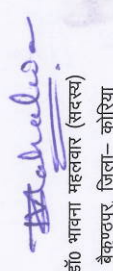 डॉ0 भावना महलवार (सदस्य)
बैकुण्ठपुर, जिला– कोरिया